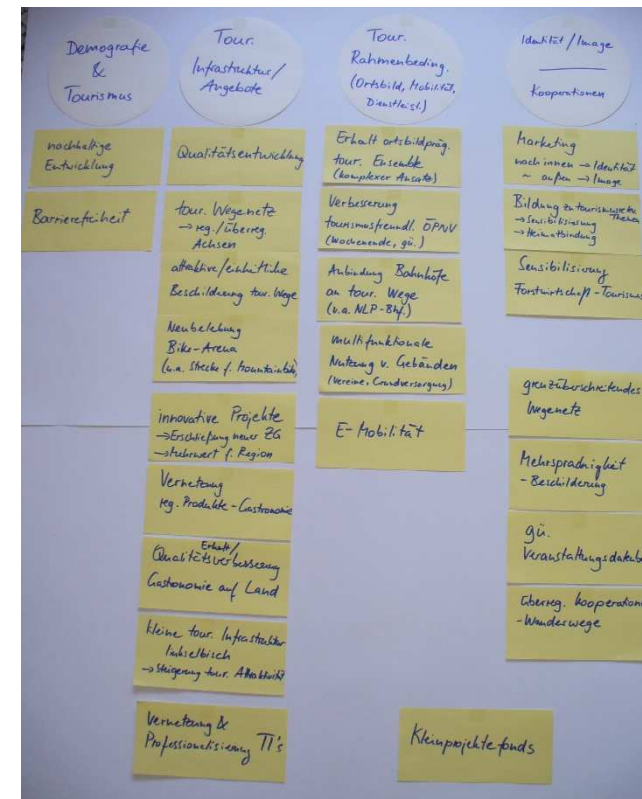 Demografie
&
Tourismus
nachhaltige
Entwicklung
Barrierefreiheit
Tour.
Infrastruktur/
Angebote
Qualitätsentwicklung
tour. Wegenetz
→ reg./überreg.
Achsen
attraktive/einheitliche
Beschilderung tour. Wege
Neubelebung
Bike-Arena
(u.a. Strecke f. Mountainbike)
innovative Projekte
→ Erschließung neuer ZG
→ Mehrwert f. Region
Vernetzung
reg. Produkte - Gastronomie
Erhalt/
Qualitätsverbesserung
Gastonomie auf Land
kleine tour. Infrastruktur
linkselbisch
→ Steigerung tour. Attraktivität
Vernetzung &
Professionalisierung TI's
Tour.
Rahmenbeding.
(Ortsbild, Mobilität,
Dienstleist.)
Erhalt ortsbildpräg.
tour. Ensemble
(komplexer Ansatz)
Verbesserung
tourismusfreundl. ÖPNV
(Wochenende, gü.)
Anbindung Bahnhöfe
an tour. Wege
(u.a. NLP-Bhf.)
multifunktionale
Nutzung v. Gebäuden
(Vereine, Grundversorgung)
E-Mobilität
Kleinprojektefonds
Identität/Image
Kooperationen
Marketing
nach innen → Identität
~ außen → Image
Bildung zu tourismusrelev.
Themen
→ Sensibilisierung
→ Heimatbindung
Sensibilisierung
Forstwirtschaft-Tourismus
grenzüberschreitendes
Wegenetz
Mehrsprachigkeit
- Beschilderung
gü.
Veranstaltungsdatenb
überreg. Kooperation
- Wanderwege